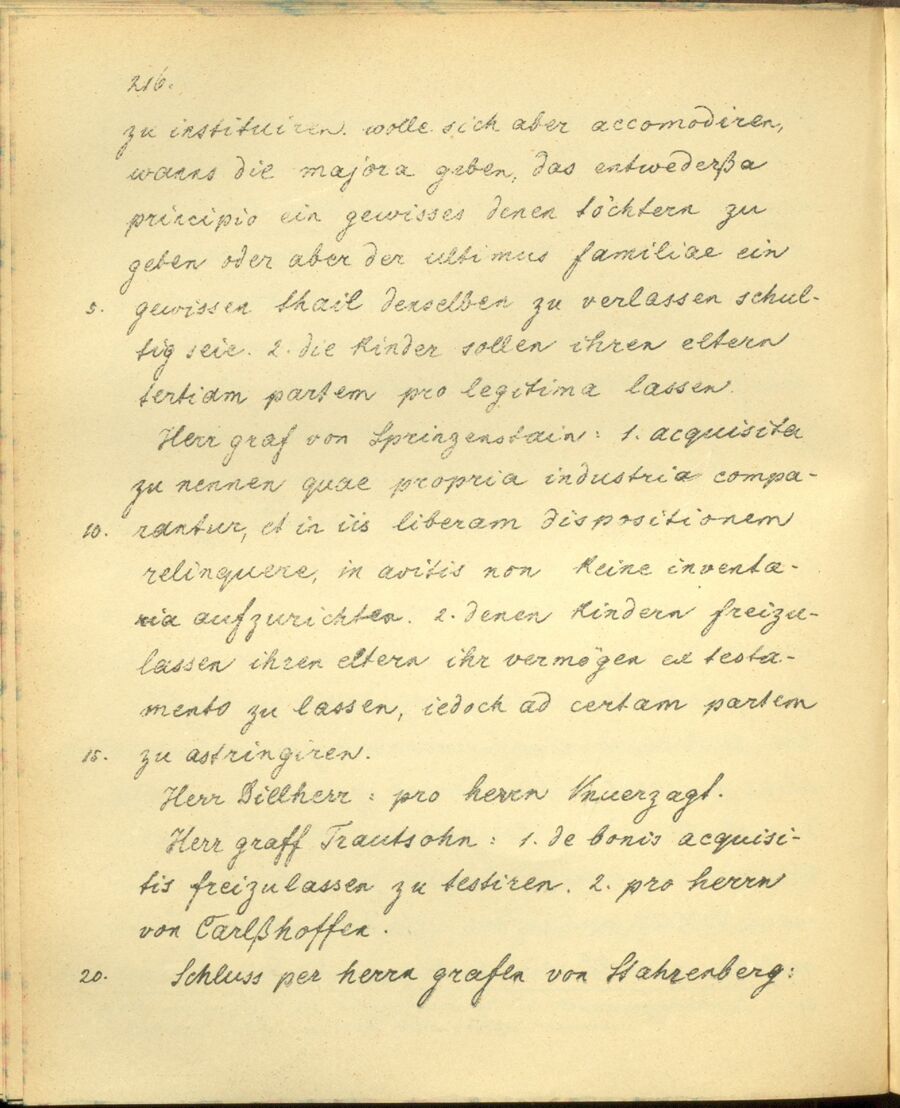 216.
zu instituiren. wolle sich aber accomodiren,
wanns die majora geben, das entwederßa
principio ein gewisses denen töchtern zu
geben oder aber der ultimus familiae ein
5. gewissen thail denselben zu verlassen schul-
tig seie. 2. die kinder sollen ihren eltern
tertiam partem pro legitima lassen.
Herr graf von Sprinzenstain: 1. acquisita
zu nennen quae propria industria compa-
10. rantur, et in iis liberam dispositionem
relinquere, in avitis non keine inventa-
ria aufzurichten. 2. denen kindern freizu-
lassen ihren eltern ihr vermögen ex testa-
mento zu lassen, iedoch ad certam partem
15. zu astringiren.
Herr Dillherr: pro herrn Vnuerzagt.
Herr graff Trautsohn: 1. de bonis acquisi-
tis freizulassen zu testiren. 2. pro herrn
von Carlßhoffen.
20. Schluss per herrn grafen von Stahrenberg: